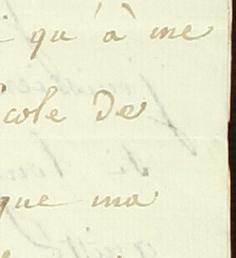 qu'à me
cole de
que ma